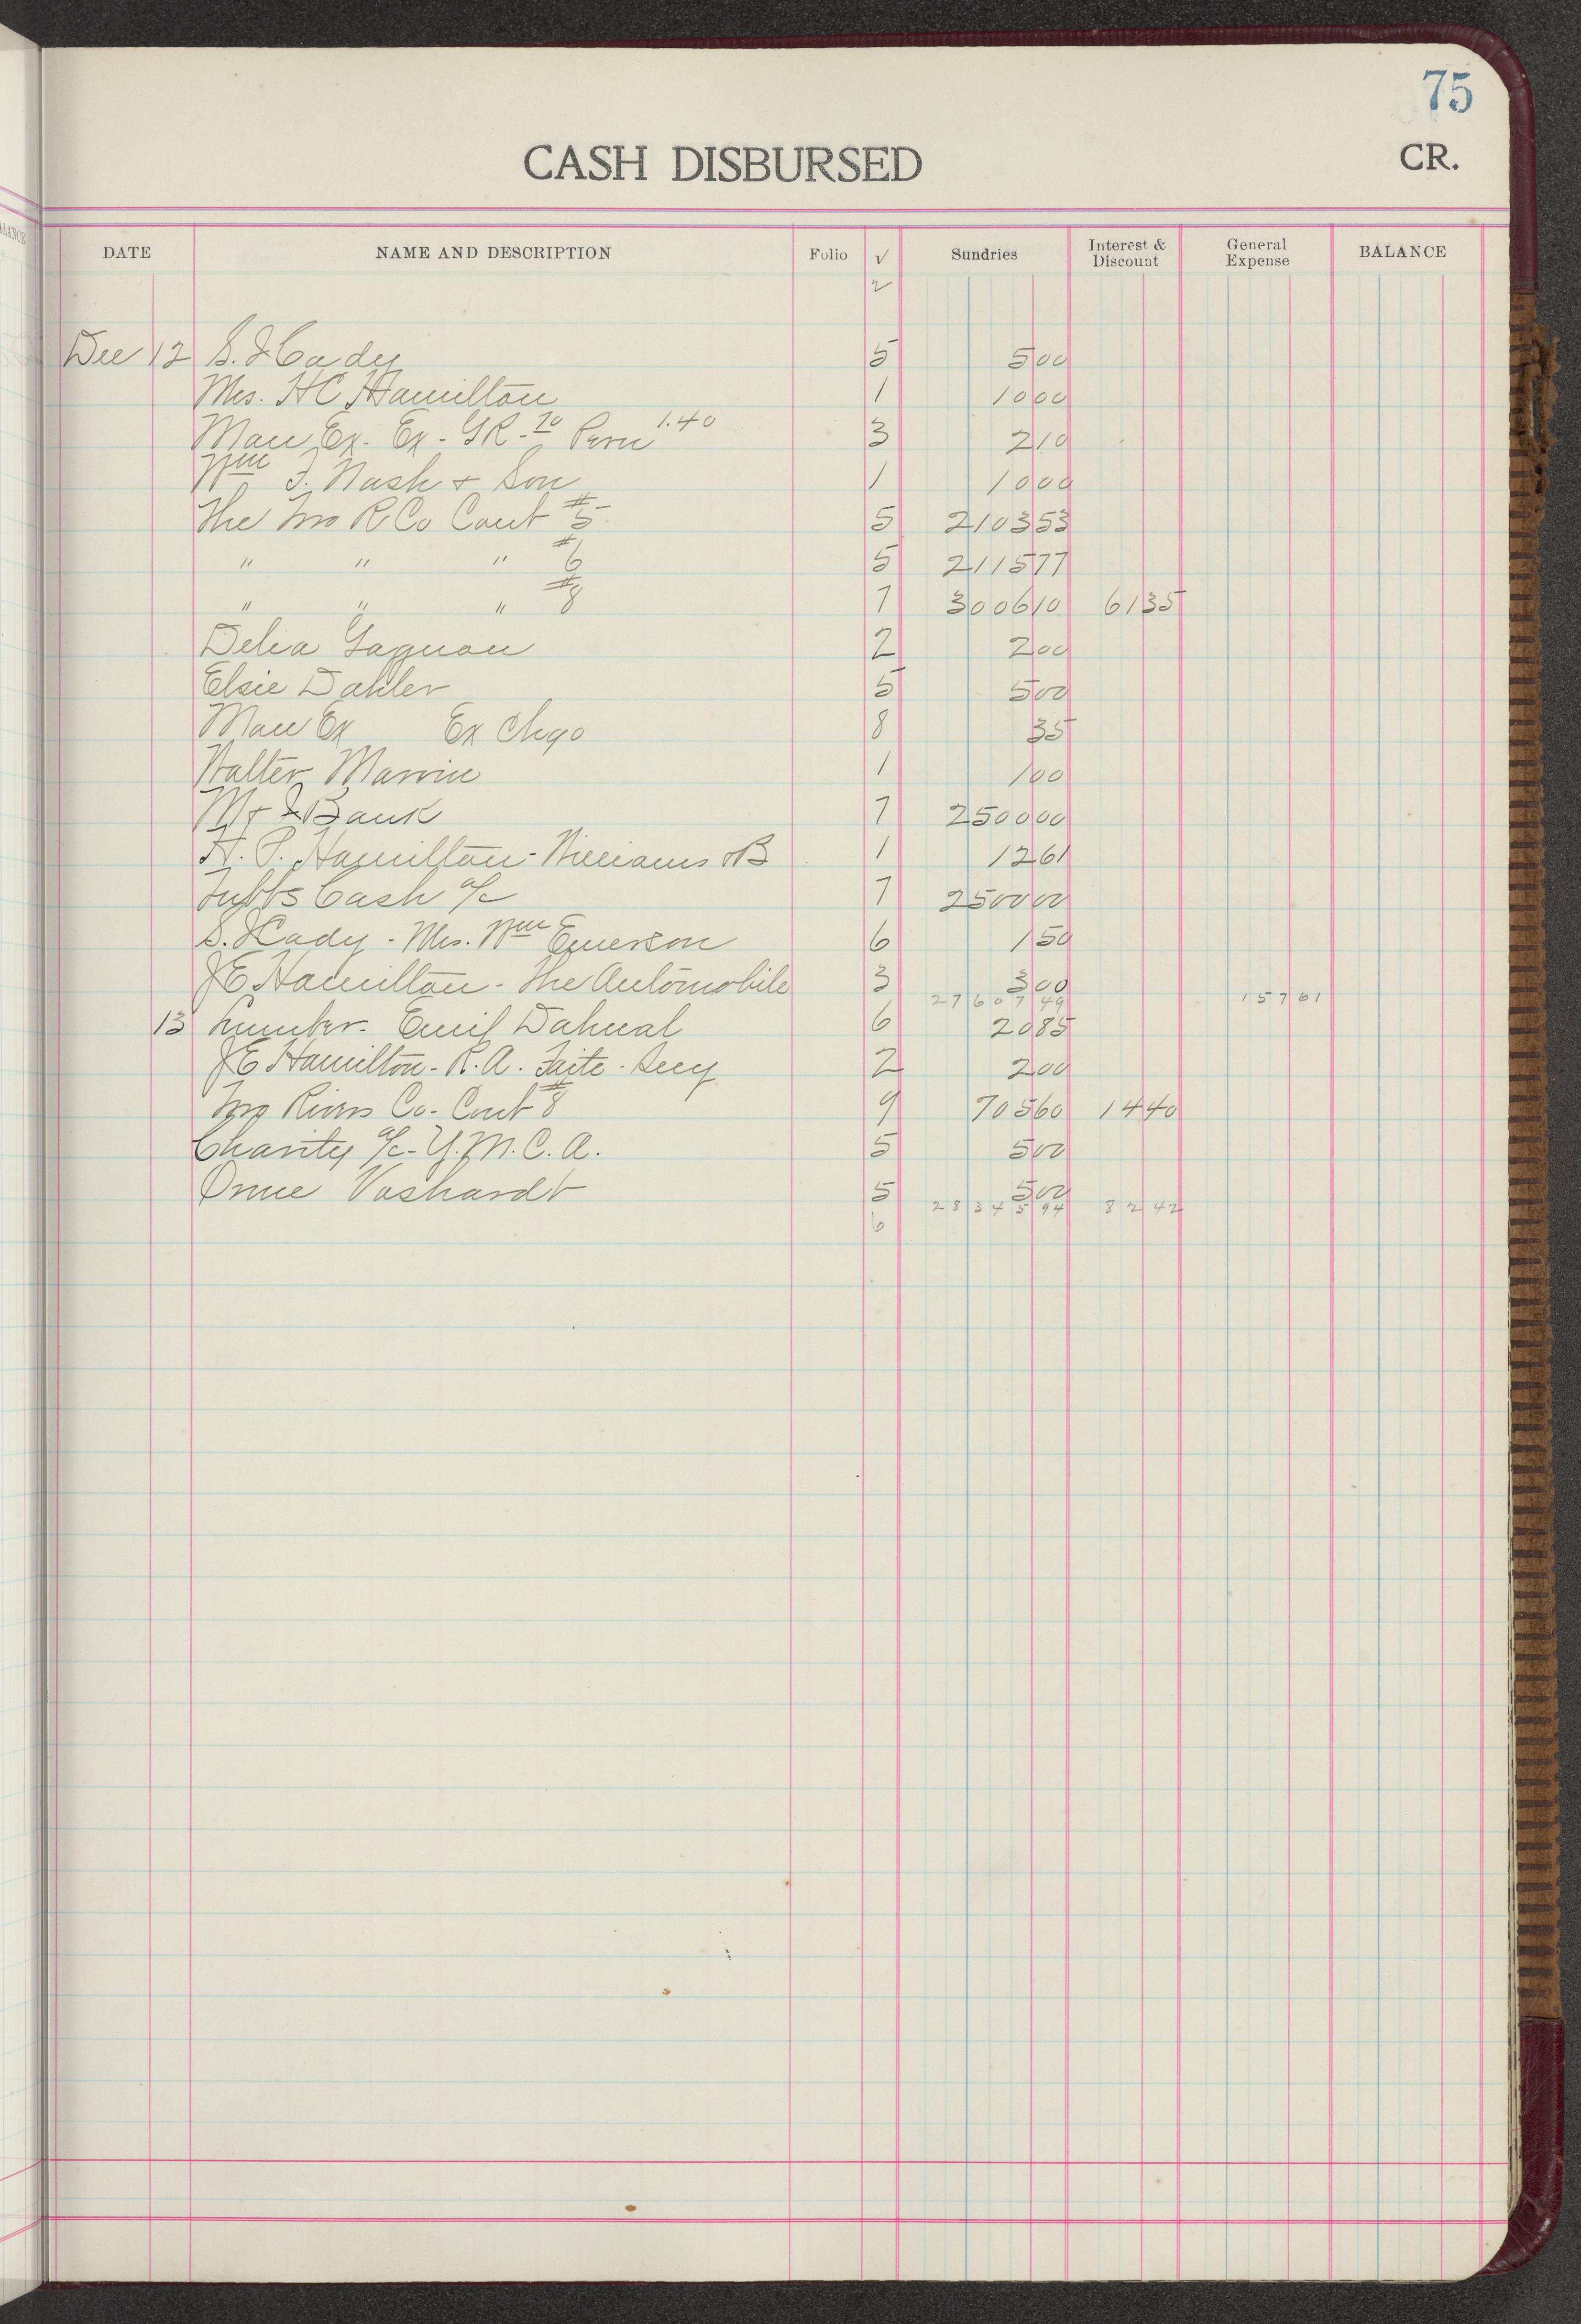 75
CASH DISBURSED CR.
ALANCE
DATE NAME AND DESCRIPTION Folio √ Sundries Interest & Discount General Expense BALANCE
2
Dec 12 S. J Cady 5 5 00
Mrs. H C Hamilton 1 10 00
Man Ex. Ex - GR - 70 Peru 1.40 3 2 10
Wm F. Nash & Son 1 10 00
The Two R Co Cont #5 5 2103 53
" " " #6 5 2115 77
" " " #8 7 3006 10 61 35
Delia Gagnon 2 2 00
Elsie Dahler 5 5 00
Man Ex Ex Chgo 8 35
Walter Marvin 1 1 00
M & I Bank 7 2500 00
H. P. Hamilton - Williams & B 1 12 61
Tubbs Cash a/c 7 2500 00
S. J Cady - Mrs. Wm Emerson 6 1 50
J E Hamilton - The Automobile 3 3 00
27607 49 157 61
13 Lumber - Emil Dahual 6 20 85
J E Hamilton - R. A. Taite - Secy 2 2 00
Two Rivers Co - Cont #8 9 705 60 14 40
Charity a/c - Y. M. C. A. 5 5 00
Orme Vashardt 5 5 00
28345 94 82 42
6